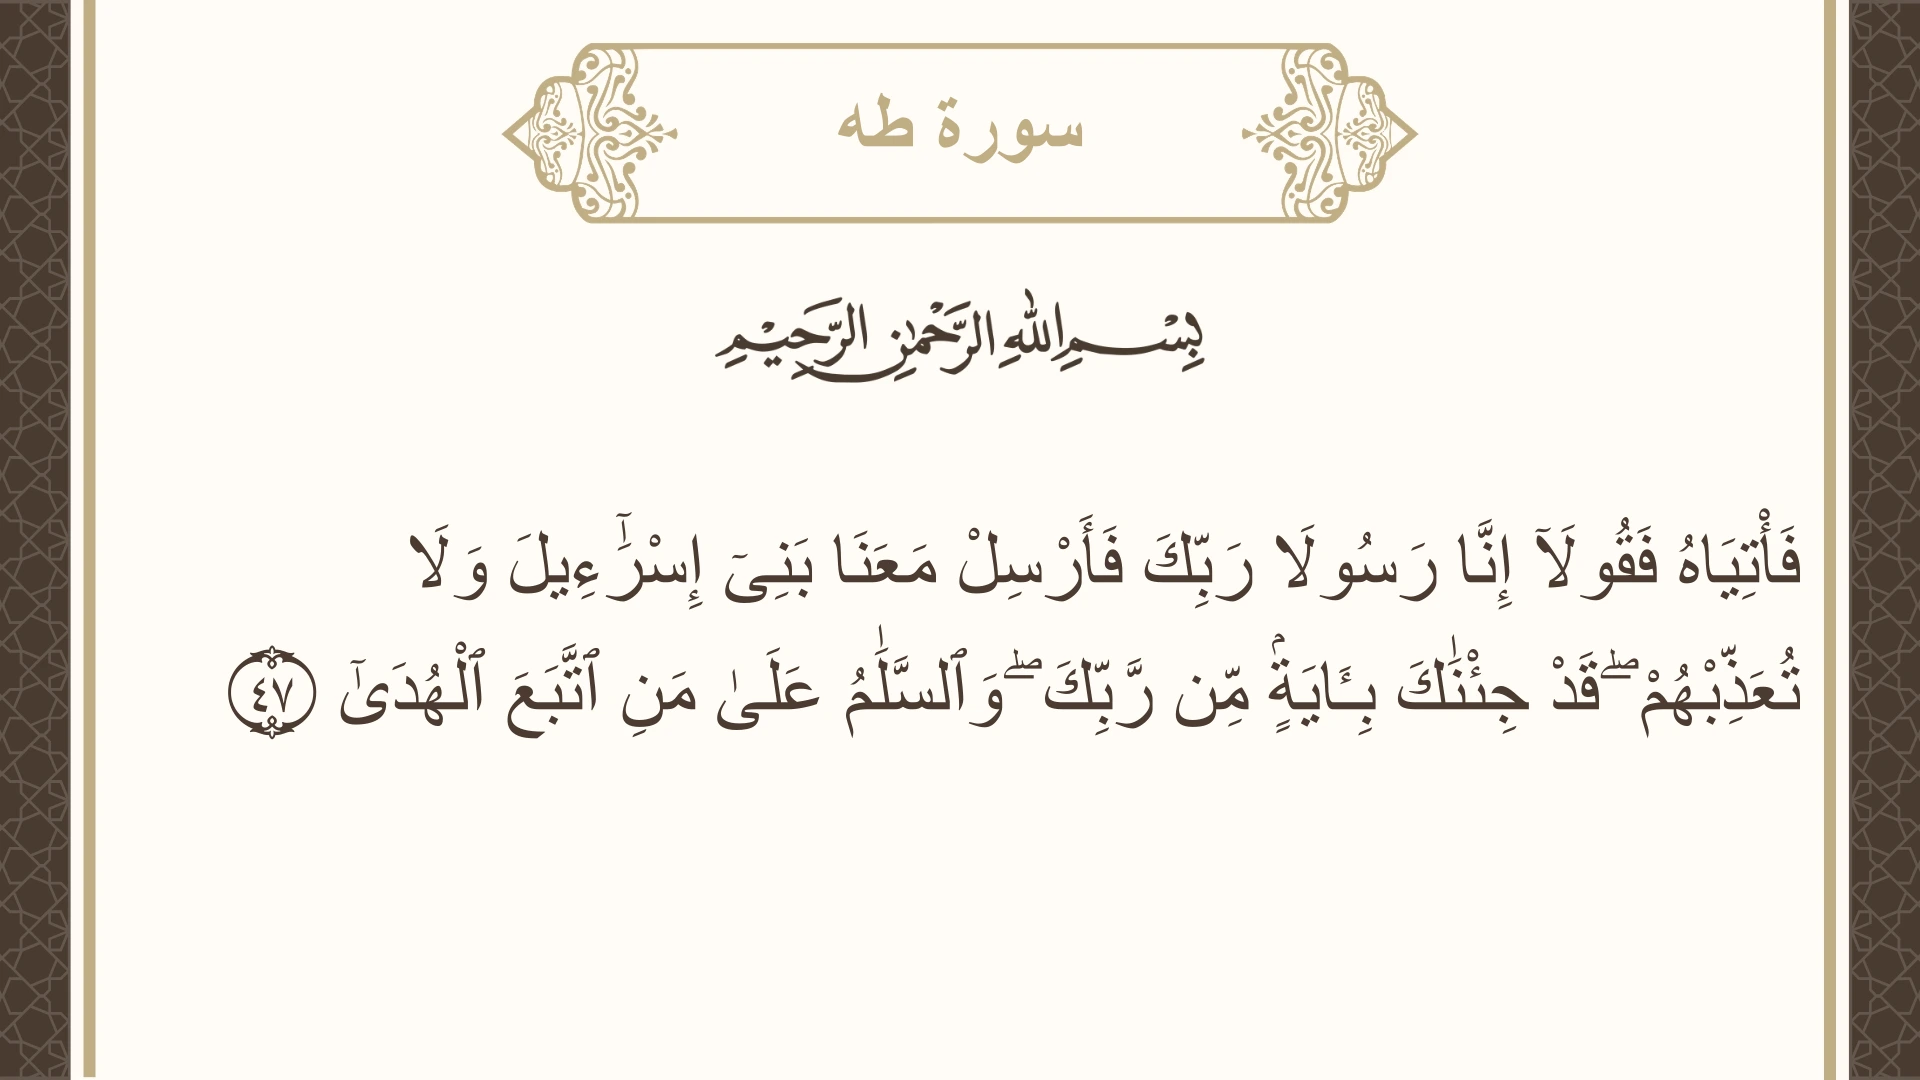 سورة طه
بِسْمِ اللهِ الرَّحْمٰنِ الرَّحِيْمِ
فَأْتِيَاهُ فَقُولَآ إِنَّا رَسُولَا رَبِّكَ فَأَرْسِلْ مَعَنَا بَنِىٓ إِسْرَٰٓءِيلَ وَلَا
تُعَذِّبْهُمْ ۖ قَدْ جِئْنَٰكَ بِـَٔايَةٍۢ مِّن رَّبِّكَ ۖ وَٱلسَّلَٰمُ عَلَىٰ مَنِ ٱتَّبَعَ ٱلْهُدَىٰٓ ٤٧